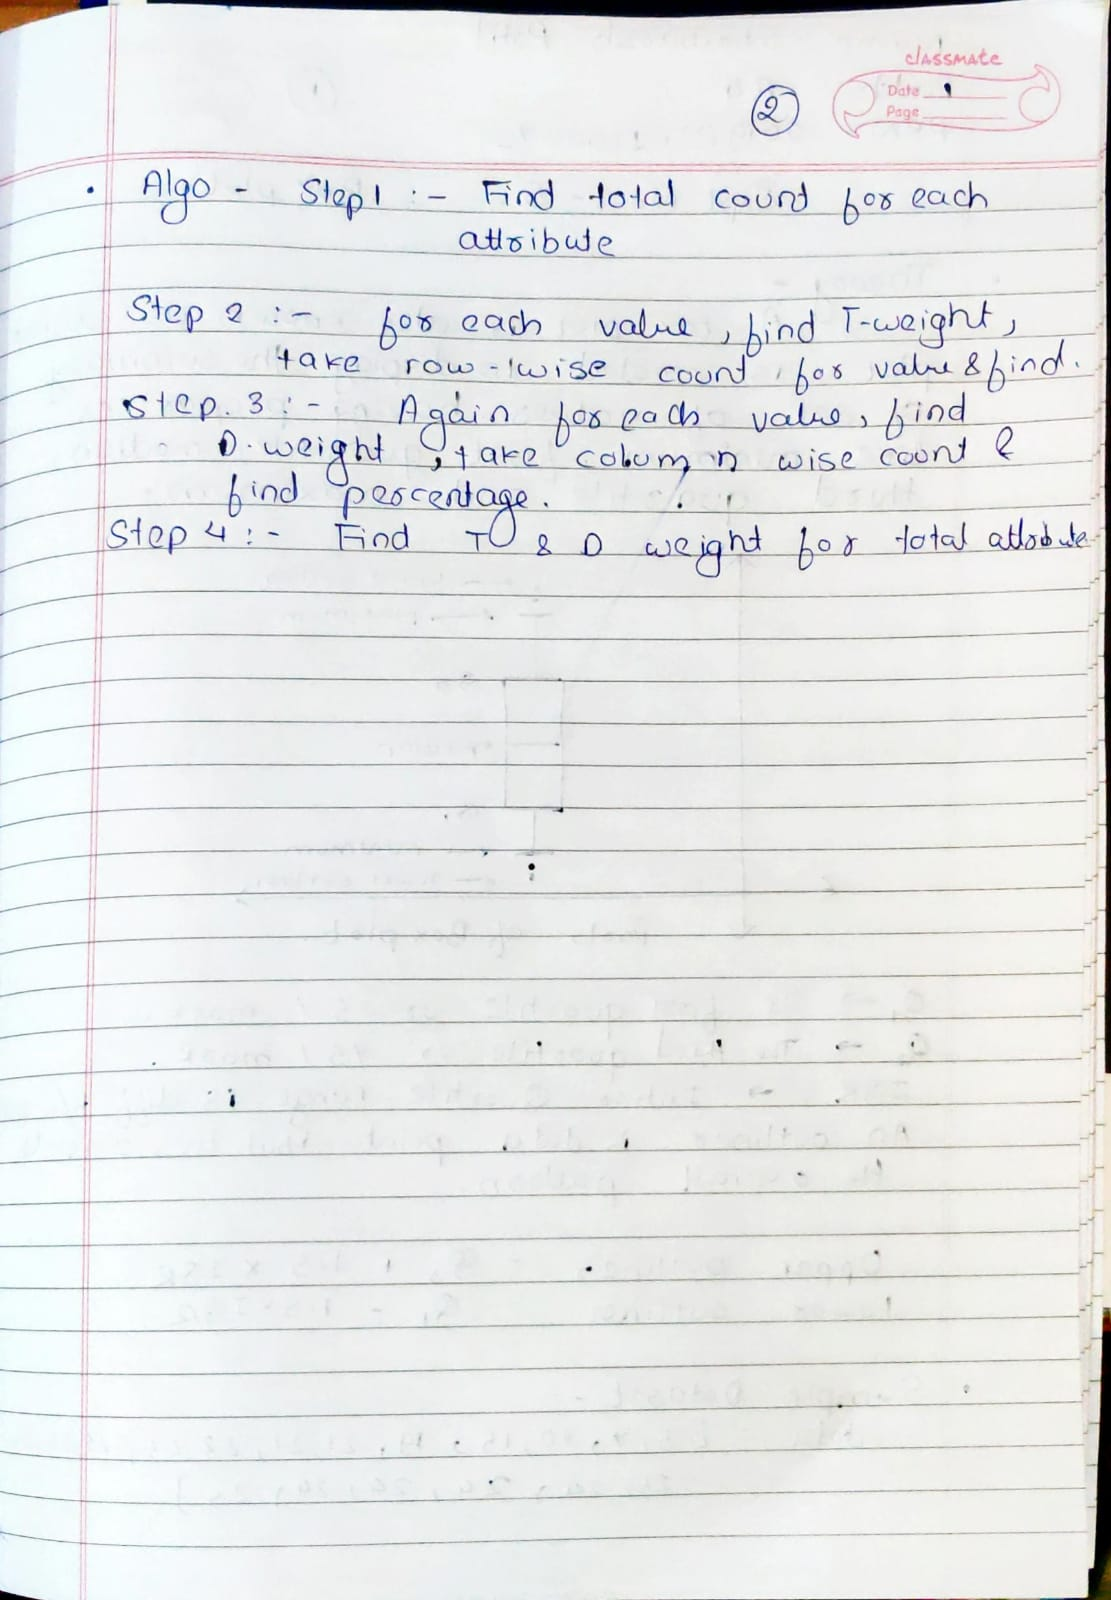 classmate
Date
Page
2
• Algo - Step 1 :- Find total count for each
attribute
Step 2 :- for each value, find T-weight,
take row-wise count for value & find.
Step. 3 :- Again for each value, find
D-weight, take column wise count &
find percentage.
Step 4 :- Find T & D weight for total attribute